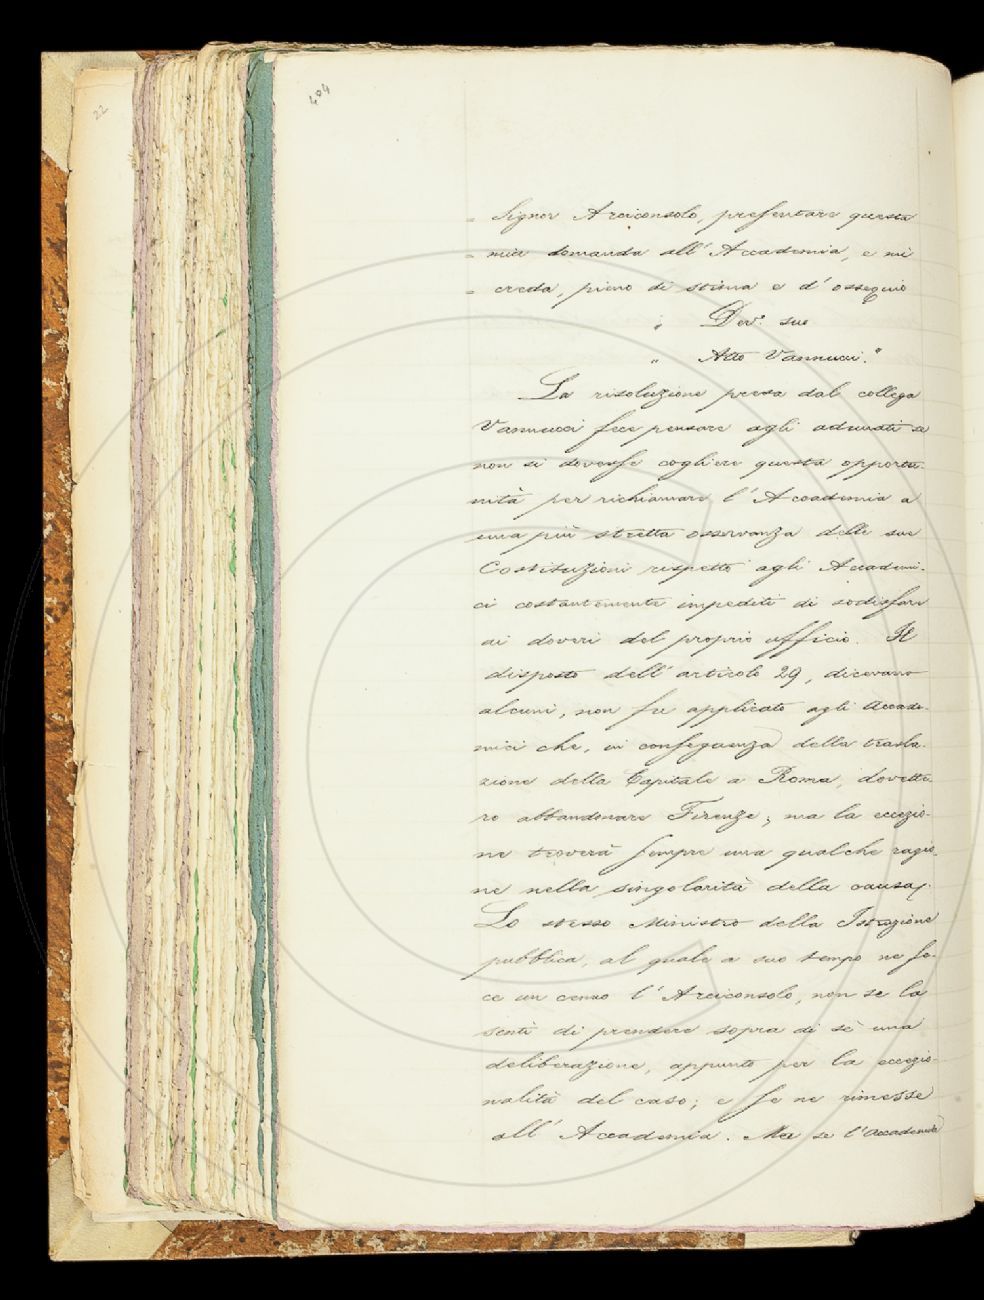 22
404
„ Signor Arciconsolo, presentare questa
„ mia domanda all'Accademia, e mi
„ creda, pieno di stima e d'ossequio
„ Dev.º suo
„ Atto Vannucci."
La risoluzione presa dal collega
Vannucci fece pensare agli adunati se
non si dovesse cogliere questa opportu-
nità per richiamare l'Accademia a
una più stretta osservanza delle sue
Costituzioni rispetto agli Accademi-
ci costantemente impediti di sodisfare
ai doveri del proprio ufficio. Il
disposto dell'articolo 29, dicevano
alcuni, non fu applicato agli Accade-
mici che, in conseguenza della trasla-
zione della Capitale a Roma, dovette-
ro abbandonare Firenze; ma la eccezio-
ne troverà sempre una qualche ragio-
ne nella singolarità della causa.
Lo stesso Ministro della Istruzione
pubblica, al quale a suo tempo ne fe-
ce un cenno l'Arciconsolo, non se la
sentì di prendere sopra di sè una
deliberazione, appunto per la eccezio-
nalità del caso; e se ne rimesse
all'Accademia. Ma se l'Accademia